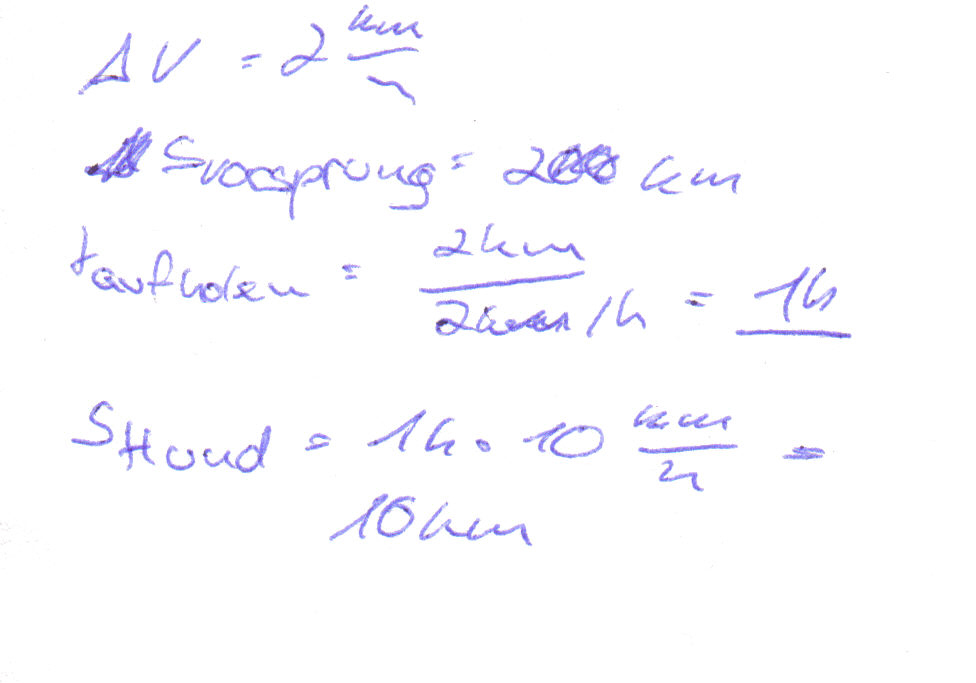 ΔV = 2 km/h
Svorsprung = 2 km
taufholen = 2km / 2km/h = 1h
SHund = 1h • 10 km/h =
10km